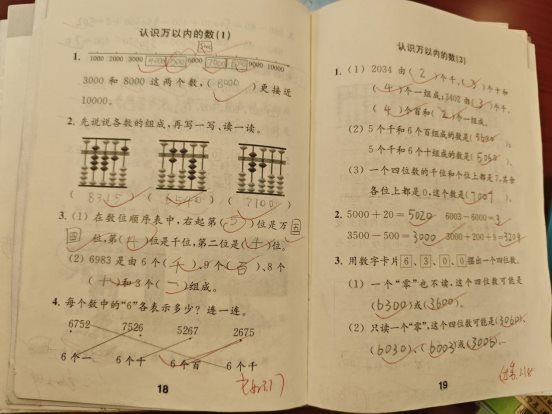 认识万以内的数(1)
1.
1000 2000 3000 4000 6000 7000 9000 10000
3000 和 8000 这两个数,( 8000 )更接近
10000。
2. 先说说各数的组成,再写一写、读一读。
( 8315 ) ( 6540 ) ( 7100 )
3. (1) 在数位顺序表中,右起第( 5 )位是万
位,第( 4 )位是千位,第二位是( 十 )位。
(2) 6983 是由 6 个( 千 ),9 个( 百 )、8 个
( 十 )和 3 个( 一 )组成。
4. 每个数中的“6”各表示多少?连一连。
6752 7526 5267 2675
6 个一 6 个十 6 个百 6 个千
18
认识万以内的数(2)
1. (1) 2034 由( 2 )个千、( 3 )个十和
( 4 )个一组成;3402 由( 3 )个千、
( 4 )个百和( 2 )个一组成。
(2) 5 个千和 6 个百组成的数是( 5600 )。
5 个千和 6 个十组成的数是( 5060 )。
(3) 一个四位数的千位和个位上都是 7,其余
各位上都是 0,这个数是( 7007 )。
2. 5000 + 20 = 5020 6003 - 6000 = 3
3500 - 500 = 3000 3000 + 200 + 9 = 3209
3. 用数字卡片 6、3、0、0 摆出一个四位数。
(1) 一个“零”也不读,这个四位数可能是
(6300)或(3600)。
(2) 只读一个“零”,这个四位数可能是(3060)、
(6030)、(6003)或(3006)。
19